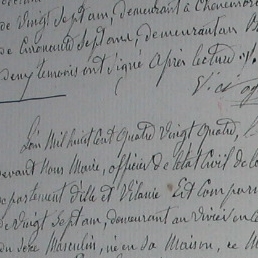 de Vingt Sept ans, demeurant à
de Cinquante Sept ans, demeurant au
deux témoins ont Signé Après lecture
L'an Mil huit cent Quatre Vingt Quatre, l
devant Nous Maire, officier de l'état Civil de la
département d'ille et Vilaine Est Compar
de vingt Sept ans, demeurant au
du Sexe Masculin, né en Sa Maison, ce M